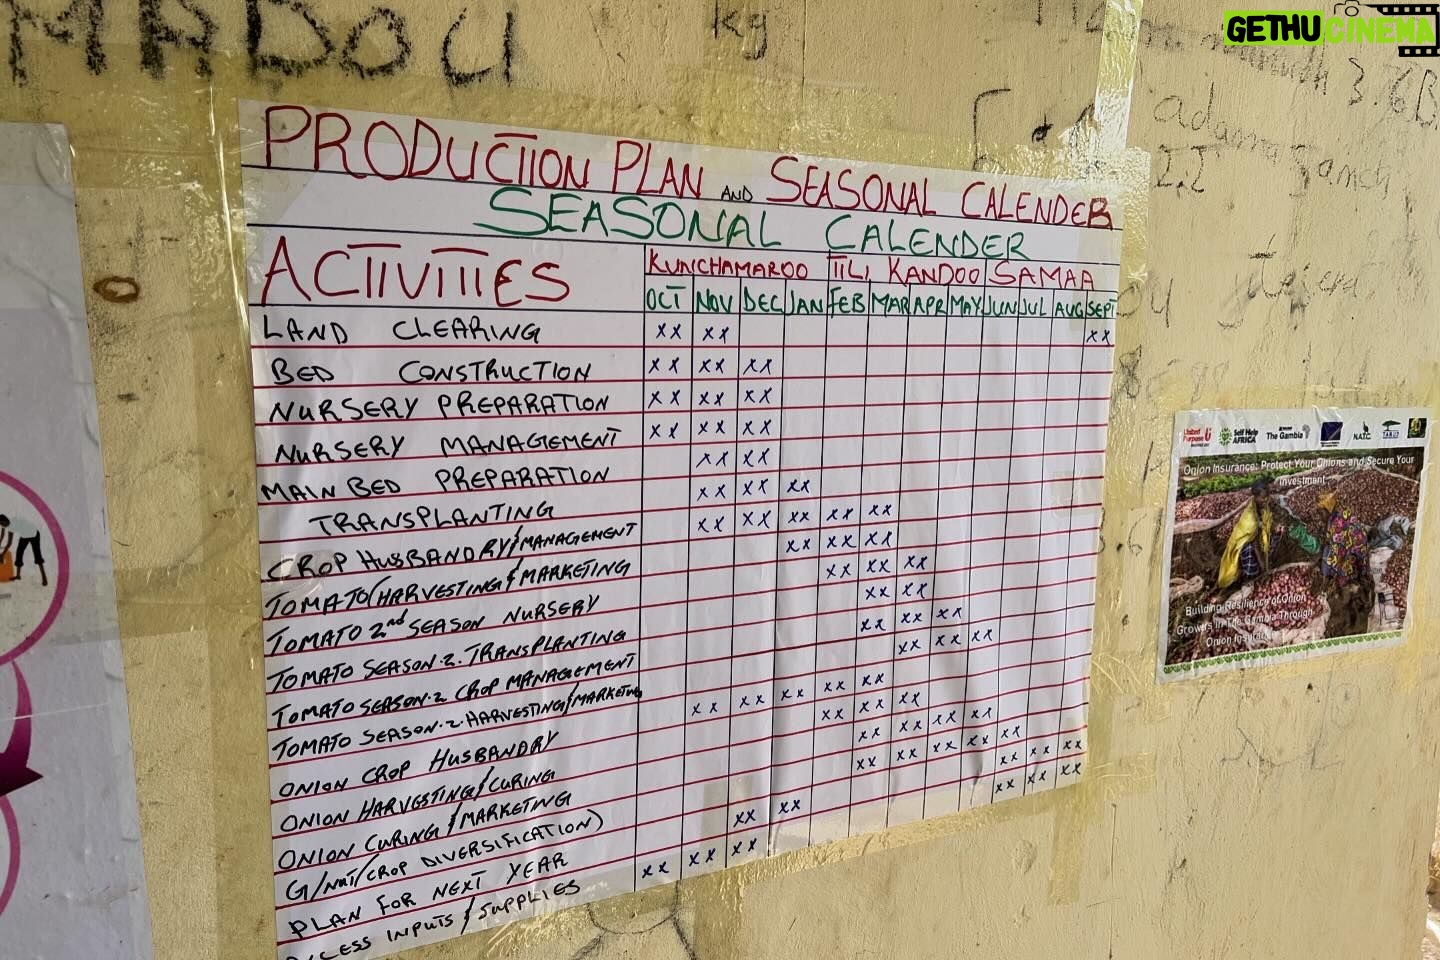 GETHUCINEMA
MADOU
kg
PRODUCTION PLAN AND SEASONAL CALENDER
SEASONAL CALENDER
ACTIVITIES
KUNCHAMAROO TILI KANDOO SAMAA
OCT NOV DEC JAN FEB MAR APR MAY JUN JUL AUG SEPT
LAND CLEARING xx xx xx
BED CONSTRUCTION xx xx xx
NURSERY PREPARATION xx xx xx
NURSERY MANAGEMENT xx xx xx
MAIN BED PREPARATION xx xx
TRANSPLANTING xx xx xx
CROP HUSBANDRY/MANAGEMENT xx xx xx xx xx
TOMATO (HARVESTING/MARKETING xx xx xx
TOMATO 2nd SEASON NURSERY xx xx xx
TOMATO SEASON.2. TRANSPLANTING xx xx
TOMATO SEASON.2 CROP MANAGEMENT xx xx xx
TOMATO SEASON.2. HARVESTING/MARKETING xx xx xx
ONION CROP HUSBANDRY xx xx xx xx xx
ONION HARVESTING/CURING xx xx xx
ONION CURING/MARKETING xx xx xx xx
G/NUT/CROP DIVERSIFICATION) xx xx xx xx xx xx xx
PLAN FOR NEXT YEAR xx xx xx xx xx
INPUTS/SUPPLIES xx xx xx
3.6B
adama
Janch
United Purpose
Self Help AFRICA
The Gambia
NATC
Onion Insurance: Protect Your Onions and Secure Your
Investment
Building Resilience of Onion
Growers in The Gambia Through
Onion Insurance